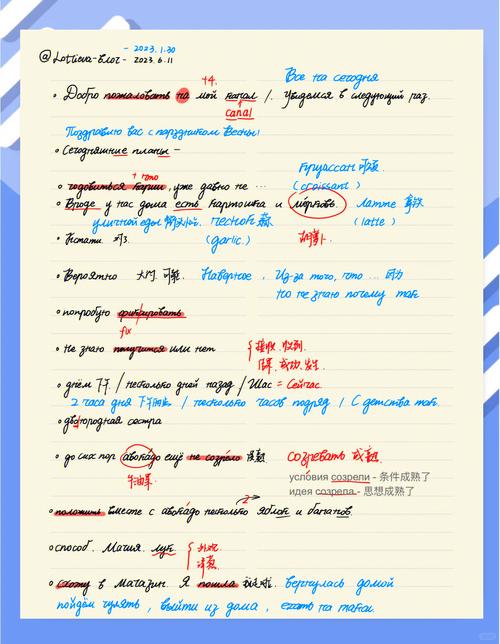 - 2023.1.30
@Lottieva-блог- - 2023.6.11
Все на сегодня
+4.
• Добро пожаловать на мой канал /. Увидемся в следующий раз.
canal
Поздравляю вас с праздником Весны!
• Сегодняшние планы -
+ что
Круассан 可颂.
• готовиться, уже давно не ...
(croissant)
• Вроде у нас дома есть картошка и морковь. Латте 拿铁
уличной еды 街边小吃. чеснок 蒜 (latte)
• Кстати 对了. (garlic.) 胡萝卜.
• Вероятно 大约. 可能. Наверное, Из-за того, что ... 因为
Но не знаю почему так
• попробую фиксировать
fix
• не знаю получится или нет { 接收. 收到.
结果. 成功. 发生.
• днём 下午. / несколько дней назад / Щас = Сейчас
2 часа дня 下午两点 / несколько часов подряд / С детства так.
• двоюродная сестра
• до сих пор авокадо ещё не созрело 成熟 созревать 成熟.
牛油果.
условия созрели - 条件成熟了
идея созрела - 思想成熟了
2
• положить вместе с авокадо несколько яблок и бананов.
• способ. Магия. лук. { 外观.
洋葱.
• Схожу в магазин. Я пошла 我走啦. вернулась домой
пойдём гулять, выйти из дома, ехать на такси.